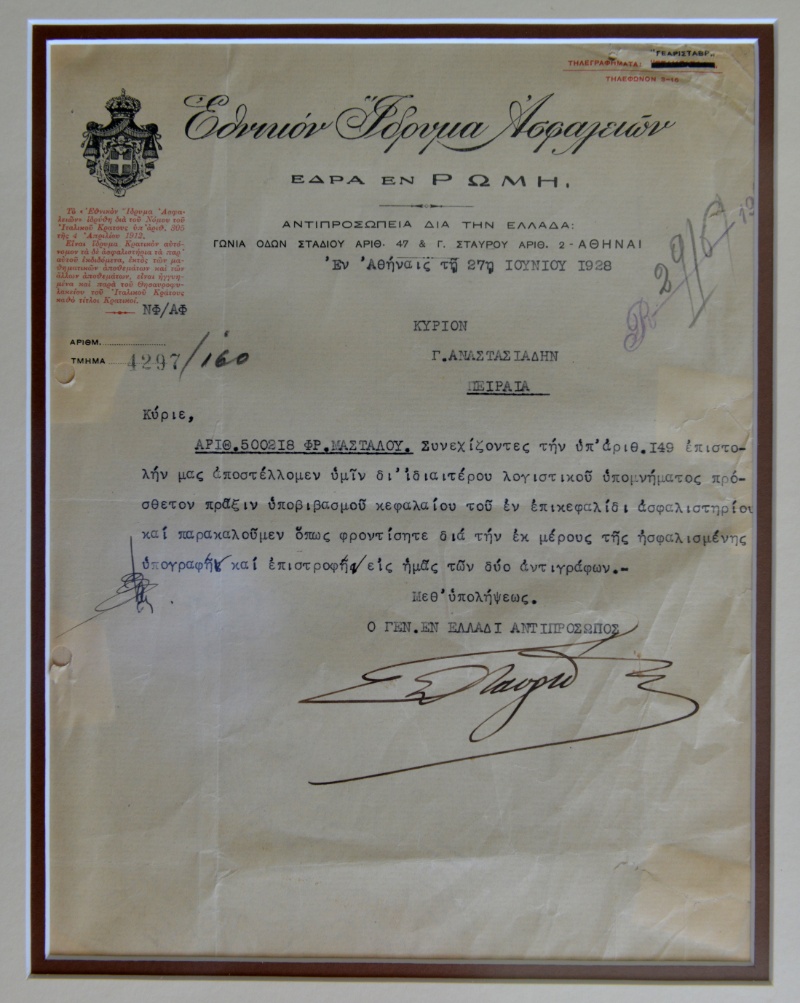 "ΓΕΑΡΙΣΤΑΒΡ"
ΤΗΛΕΓΡΑΦΗΜΑΤΑ:
ΤΗΛΕΦΩΝΟΝ 5-15
Ἐθνικόν Ἵδρυμα Ἀσφαλειῶν
ΕΔΡΑ ΕΝ ΡΩΜΗ,
ΑΝΤΙΠΡΟΣΩΠΕΙΑ ΔΙΑ ΤΗΝ ΕΛΛΑΔΑ:
ΓΩΝΙΑ ΟΔΩΝ ΣΤΑΔΙΟΥ ΑΡΙΘ. 47 & Γ. ΣΤΑΥΡΟΥ ΑΡΙΘ. 2 - ΑΘΗΝΑΙ
Ἐν Ἀθήναις τῇ 27ῃ ΙΟΥΝΙΟΥ 1928
29/6/
Τὸ «Ἐθνικὸν Ἵδρυμα Ἀσφα-
λειῶν» ἱδρύθη διὰ τοῦ Νόμου τοῦ
Ἰταλικοῦ Κράτους ὑπ' ἀριθ. 305
τῆς 4 Ἀπριλίου 1912.
Εἶναι ἵδρυμα Κρατικὸν αὐτό-
νομον τὰ δὲ ἀσφαλιστήρια τὰ παρ'
αὐτοῦ ἐκδιδόμενα, ἐκτὸς τῶν μα-
θηματικῶν ἀποθεμάτων καὶ τῶν
ἄλλων ἀποθεμάτων, εἶναι ἠγγυη-
μένα καὶ παρὰ τοῦ Θησαυροφυ-
λακείου τοῦ Ἰταλικοῦ Κράτους
καθὸ τίτλοι Κρατικοί.
ΝΦ/ΑΦ
ΑΡΙΘΜ.
ΤΜΗΜΑ 4297/160
ΚΥΡΙΟΝ
Γ.ΑΝΑΣΤΑΣΙΑΔΗΝ
ΠΕΙΡΑΙΑ
Κύριε,
ΑΡΙΘ.500218 ΦΡ.ΜΑΣΤΑΛΟΥ. Συνεχίζοντες τήν ὑπ'ἀριθ.149 ἐπιστο-
λήν μας ἀποστέλλομεν ὑμῖν δι'ἰδιαιτέρου λογιστικοῦ ὑπομνήματος πρό-
σθετον πρᾶξιν ὑποβιβασμοῦ κεφαλαίου τοῦ ἐν ἐπικεφαλίδι ἀσφαλιστηρίου
καί παρακαλοῦμεν ὅπως φροντίσητε διά τήν ἐκ μέρους τῆς ἠσφαλισμένης
ὑπογραφήν καί ἐπιστροφήν εἰς ἡμᾶς τῶν δύο ἀντιγράφων.-
Μεθ'ὑπολήψεως.
Ο ΓΕΝ.ΕΝ ΕΛΛΑΔΙ ΑΝΤΙΠΡΟΣΩΠΟΣ